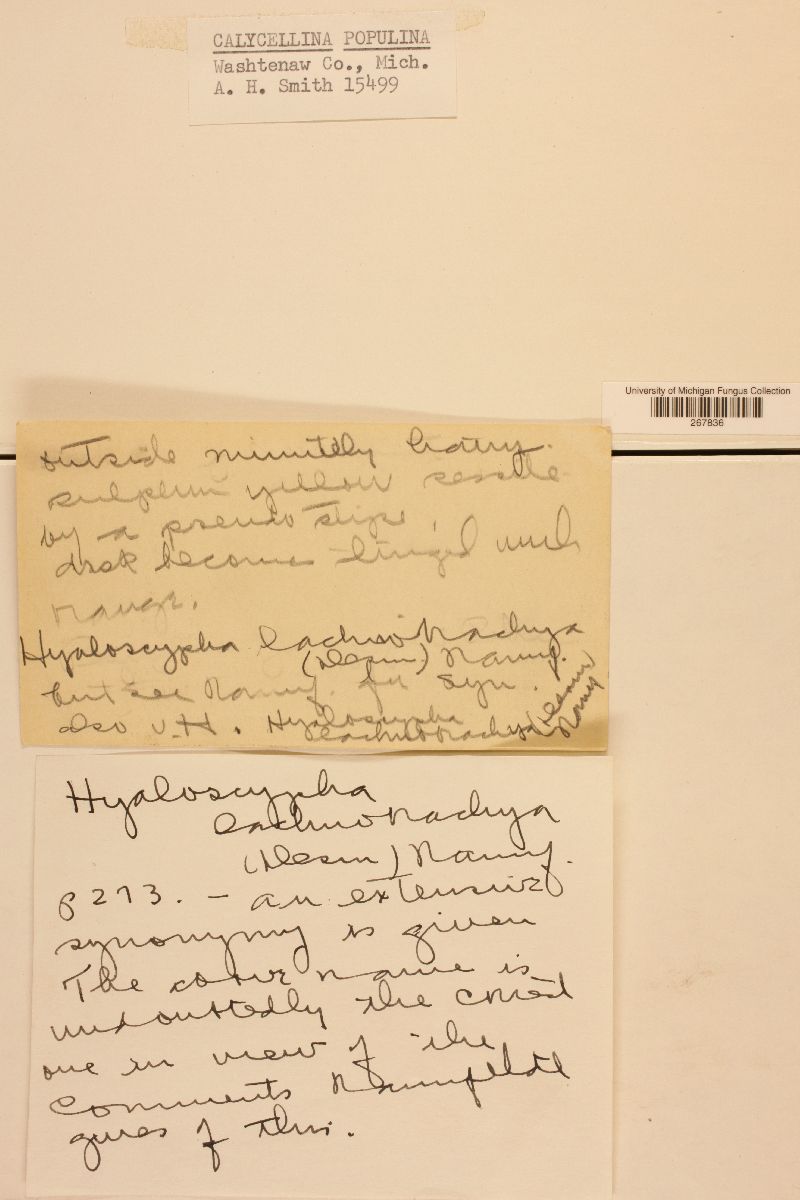 CALYCELLINA POPULINA
Washtenaw Co., Mich.
A. H. Smith 15499
University of Michigan Fungus Collection
267836
outside minutely hairy.
sulphur yellow sessile
by a pseudo stipe,
disk becomes tinged with
Hyaloscypha lachnobrachya
(Desm) Nannf.
but see Nannf. for syn.
also v.H. Hyaloscypha
lachnobrachya (Desm)
Nannf
Hyaloscypha
lachnobrachya
(Desm) Nannf.
p 273. - an extensive
synonymy is given
The above name is
undoubtedly the correct
one in view of the
comments Nannfeldt
gives of this.